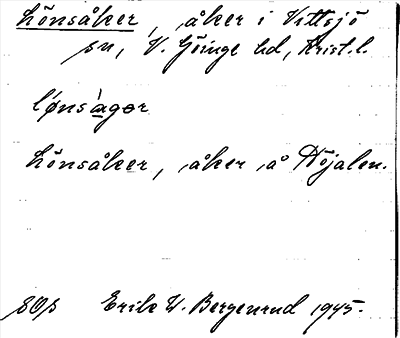 Lönsåker, åker i Vittsjö
sn, V. Göinge hd, Krist.l.
lønsàger
Lönsåker, åker å Höjalen.
Erik W. Bergenrud 1945.